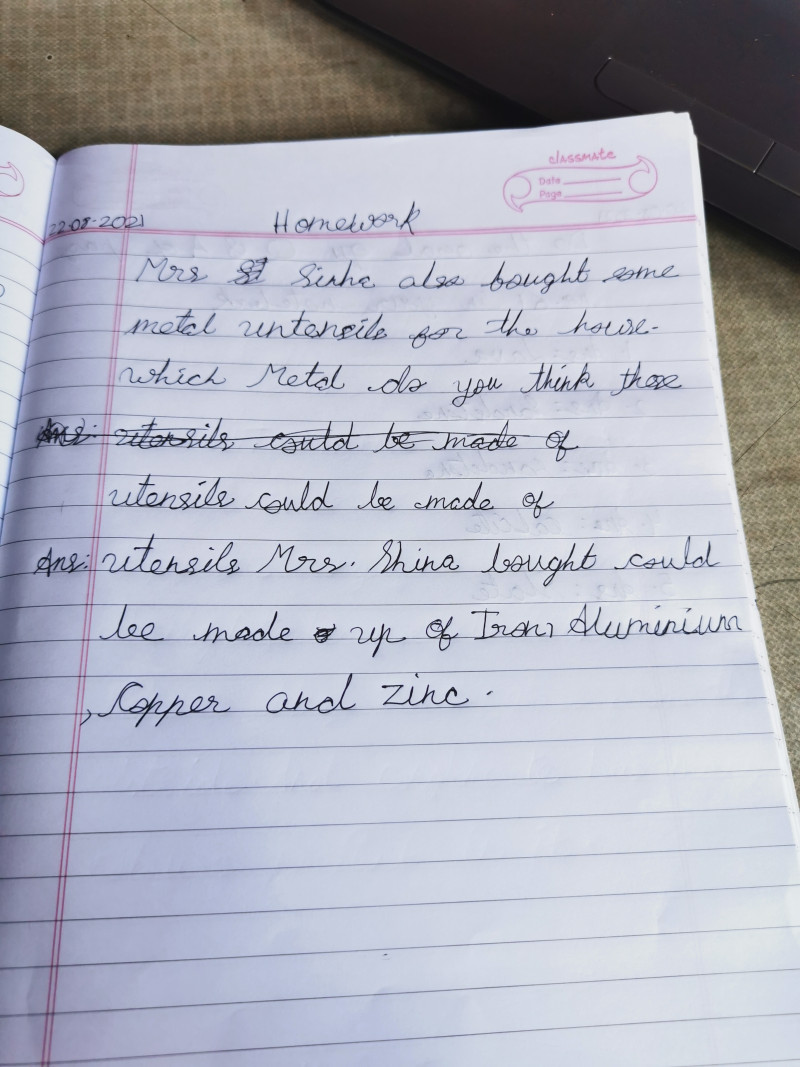 classmate
Date
Page
22-07-2021
Homework
Mrs Sinha also bought some
metal untensils for the house.
which Metal do you think these
Ans: utensils could be made of
utensils could be made of
Ans: utensils Mrs. Shina bought could
be made up of Iron, Aluminium
, Copper and zinc.